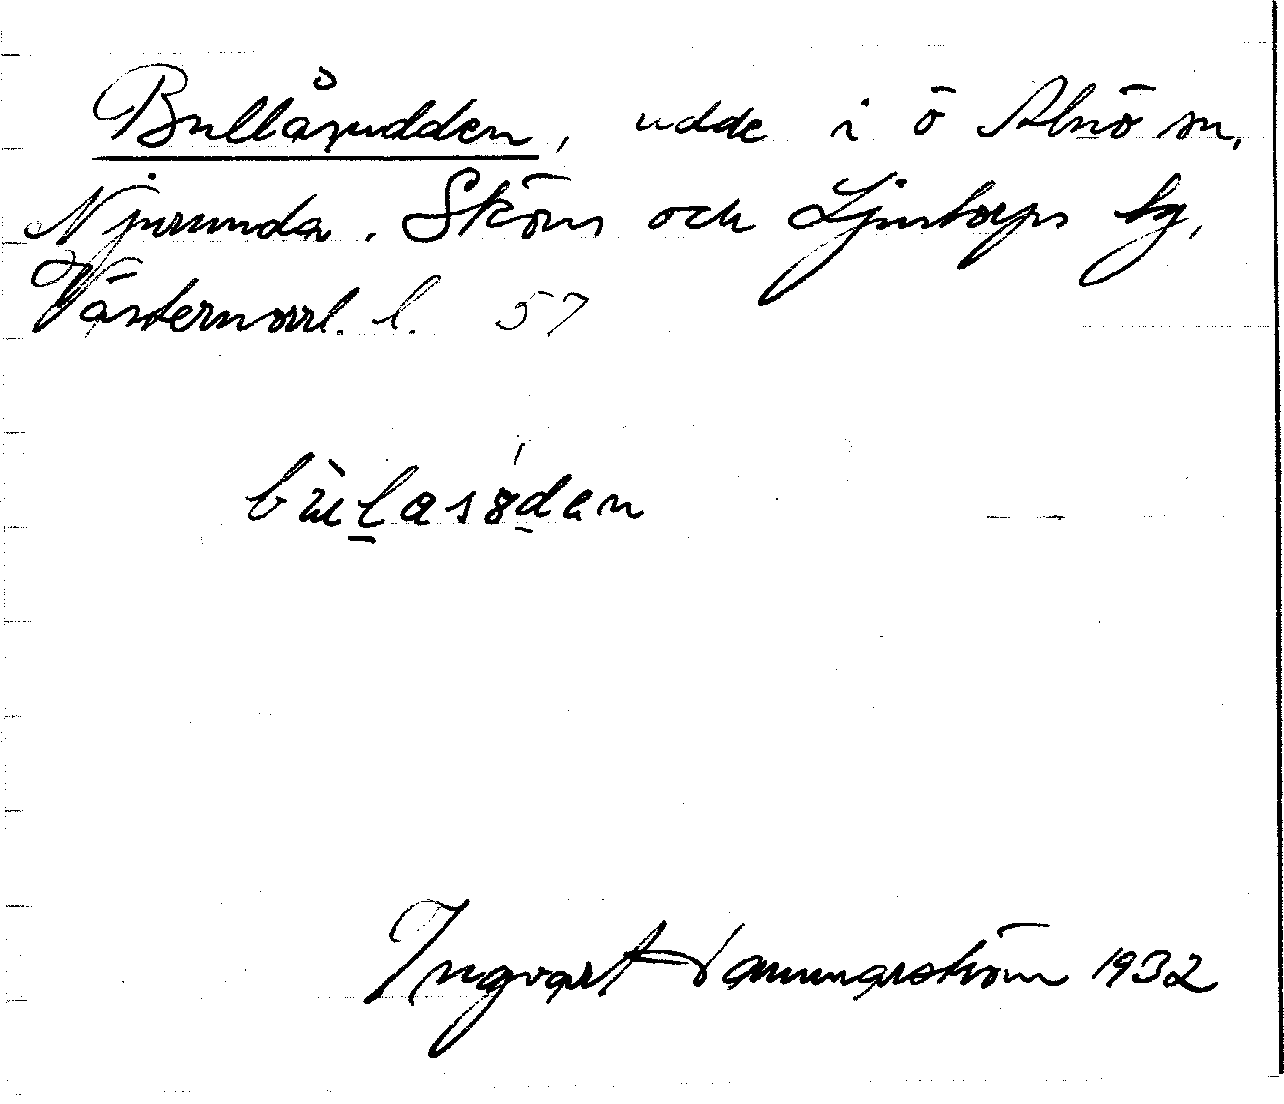 Bullåsudden, udde i ö Alnö sn,
Njurunda, Sköns och Ljustorps tg,
Västernorrl. l. 57
Ingvart Hammarström 1932